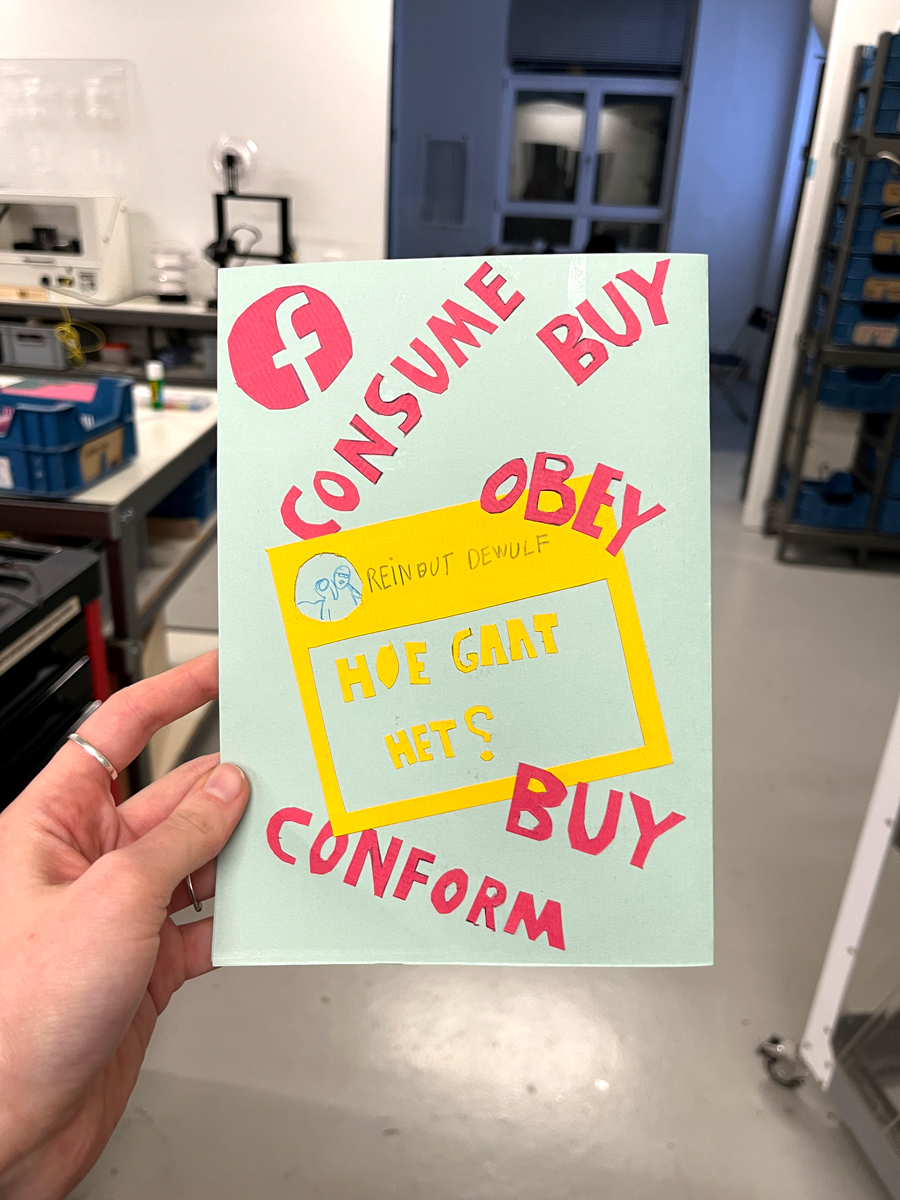 f
CONSUME
BUY
OBEY
REINOUT DEWULF
HOE GAAT
HET?
BUY
CONFORM